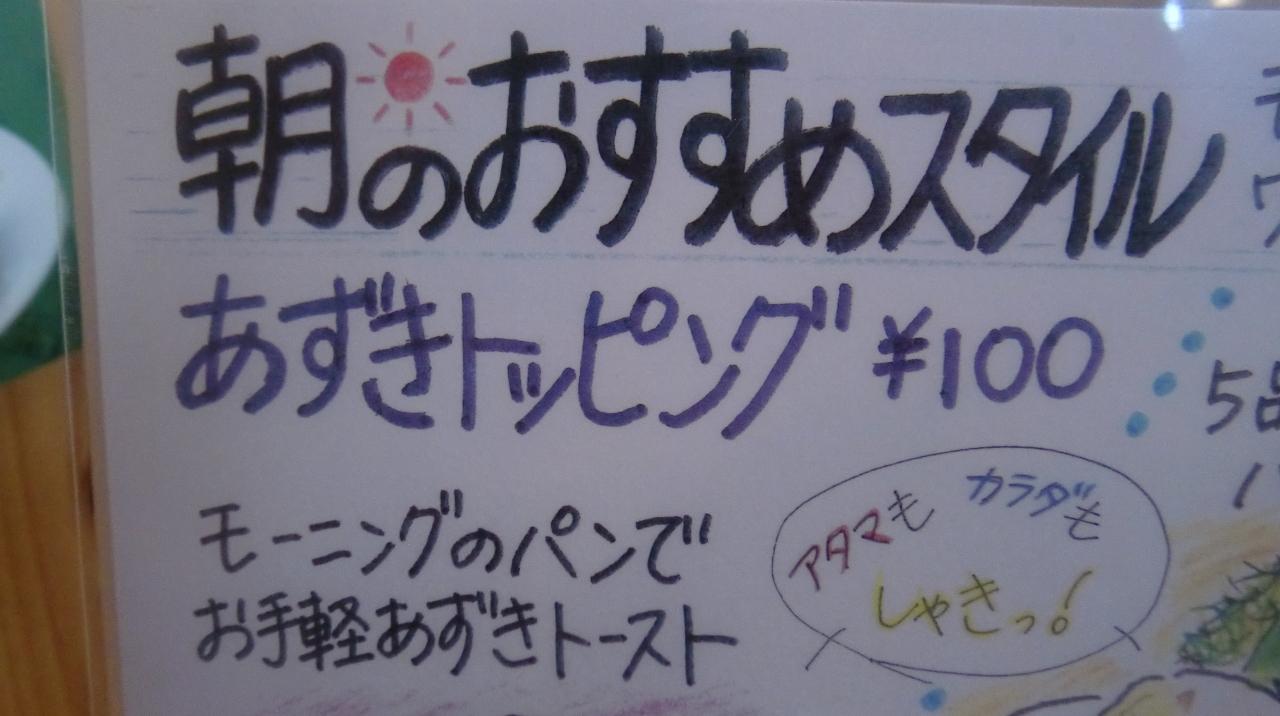 朝のおすすめスタイル
あずきトッピング ¥100
モーニングのパンで
お手軽あずきトースト
アタマも カラダも
しゃきっ!
5品